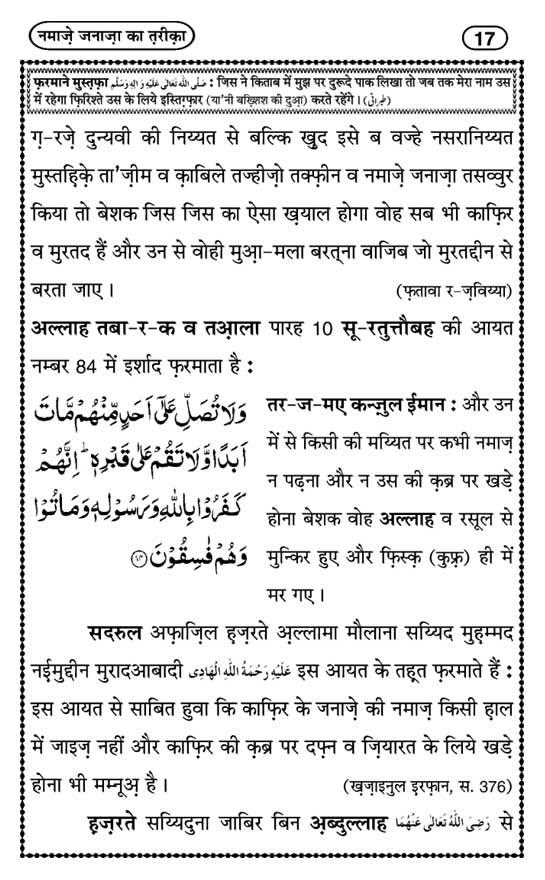 नमाज़े जनाज़ा का त़रीक़ा
17
फ़रमाने मुस्त़फ़ा صَلَّى اللّٰهُ تَعَالٰى عَلَيْهِ وَاٰلِهٖ وَسَلَّم : जिस ने किताब में मुझ पर दुरूदे पाक लिखा तो जब तक मेरा नाम उस
में रहेगा फ़िरिश्ते उस के लिये इस्तिग़्फ़ार (या'नी बख़्शिश की दुआ़) करते रहेंगे । (طبرانی)
ग़-रज़े दुन्यवी की निय्यत से बल्कि ख़ुद इसे ब वज्हे नसरानिय्यत
मुस्तह़िक़े ता'ज़ीम व क़ाबिले तज्हीज़ो तक्फ़ीन व नमाज़े जनाज़ा तसव्वुर
किया तो बेशक जिस जिस का ऐसा ख़याल होगा वोह सब भी काफ़िर
व मुरतद हैं और उन से वोही मुआ़-मला बरत्ना वाजिब जो मुरतद्दीन से
बरता जाए ।
(फ़तावा र-ज़विय्या)
अल्लाह तबा-र-क व तआ़ला पारह 10 सू-रतुत्तौबह की आयत
नम्बर 84 में इर्शाद फ़रमाता है :
وَلَا تُصَلِّ عَلٰۤى اَحَدٍ مِّنْهُمْ مَّاتَ
اَبَدًا وَّلَا تَقُمْ عَلٰى قَبْرِهٖؕ اِنَّهُمْ
كَفَرُوْا بِاللّٰهِ وَرَسُوْلِهٖ وَمَاتُوْا
وَهُمْ فٰسِقُوْنَ ﴿۸۴﴾
तर-ज-मए कन्ज़ुल ईमान : और उन
में से किसी की मय्यित पर कभी नमाज़
न पढ़ना और न उस की क़ब्र पर खड़े
होना बेशक वोह अल्लाह व रसूल से
मुन्किर हुए और फ़िस्क़ (कुफ़्र) ही में
मर गए ।
सदरुल अफ़ाज़िल ह़ज़रते अ़ल्लामा मौलाना सय्यिद मुह़म्मद
नई़मुद्दीन मुरादआबादी عَلَيْهِ رَحْمَةُ اللّٰهِ الْهَادِى इस आयत के तह़्त फ़रमाते हैं :
इस आयत से साबित हुवा कि काफ़िर के जनाज़े की नमाज़ किसी ह़ाल
में जाइज़ नहीं और काफ़िर की क़ब्र पर दफ़्न व ज़ियारत के लिये खड़े
होना भी मम्नूअ़ है ।
(ख़ज़ाइनुल इरफ़ान, स. 376)
ह़ज़रते सय्यिदुना जाबिर बिन अ़ब्दुल्लाह رَضِىَ اللّٰهُ تَعَالٰى عَنْهُمَا से